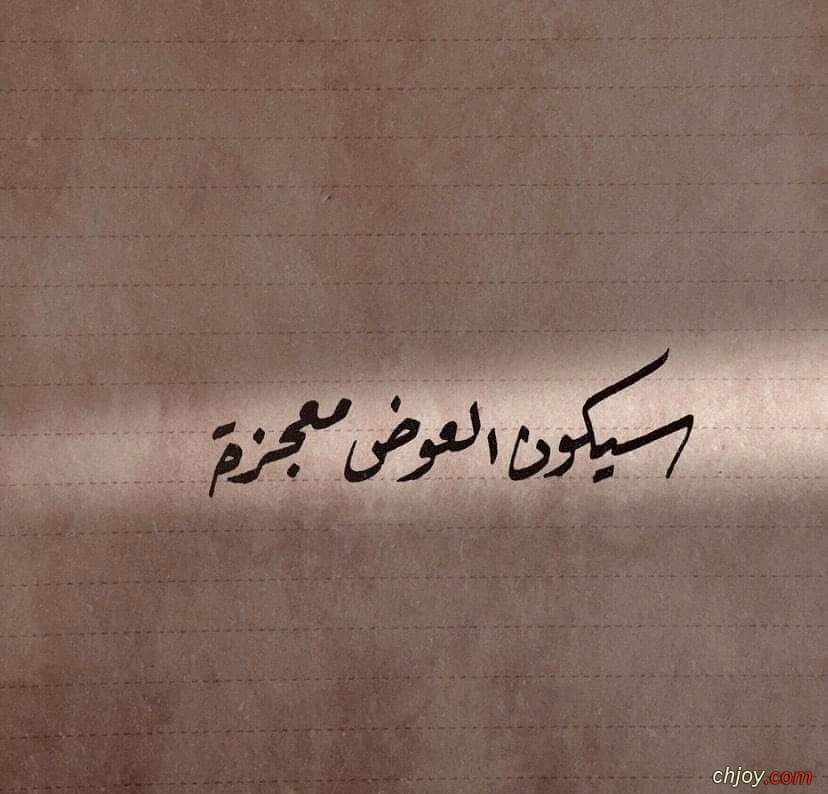 سيكون العوض معجزة
chjoy.com